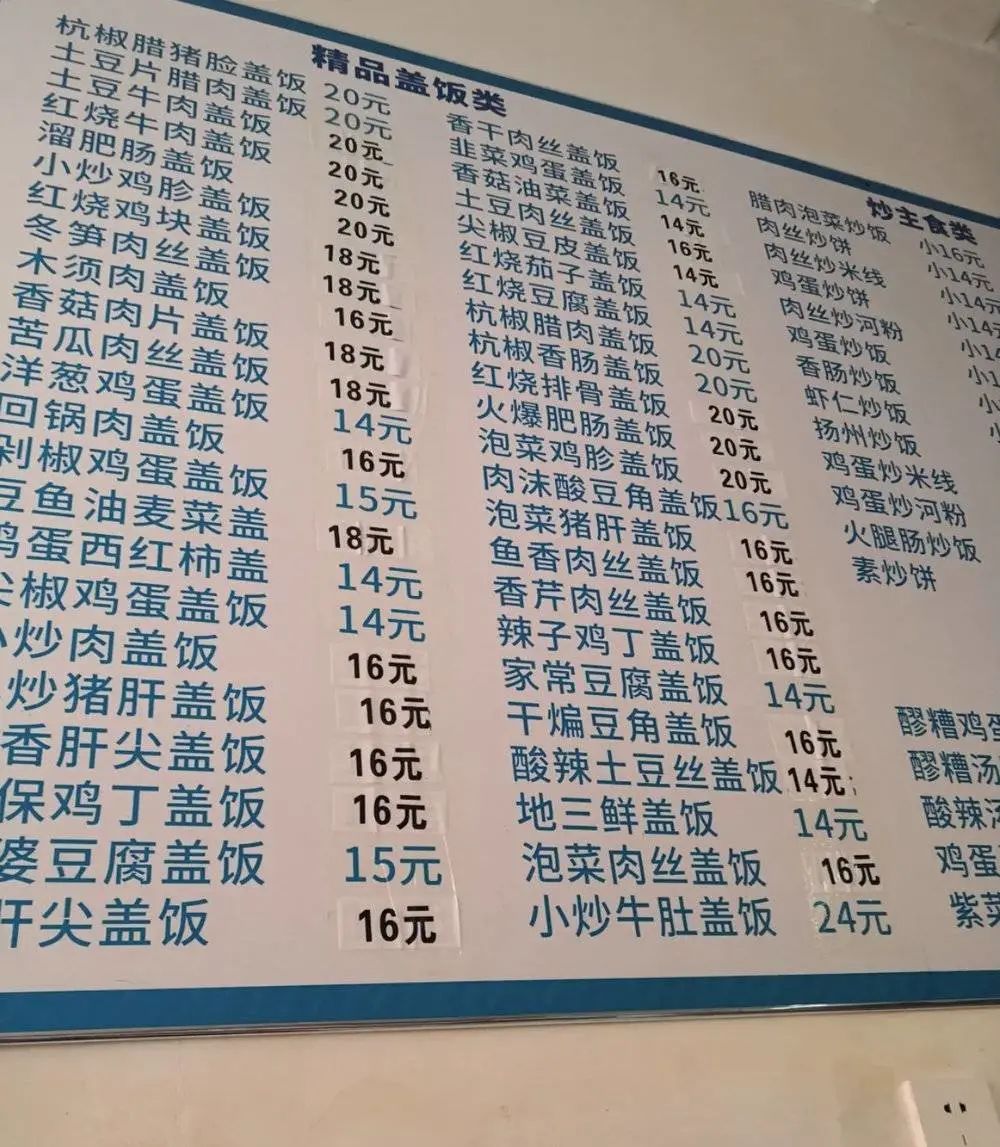 精品盖饭类
杭椒腊猪脸盖饭 20元
土豆片腊肉盖饭 20元
土豆牛肉盖饭 20元
红烧牛肉盖饭 20元
溜肥肠盖饭 20元
小炒鸡胗盖饭 20元
红烧鸡块盖饭 18元
冬笋肉丝盖饭 18元
木须肉盖饭 16元
香菇肉片盖饭 18元
苦瓜肉丝盖饭 18元
洋葱鸡蛋盖饭 14元
回锅肉盖饭 16元
剁椒鸡蛋盖饭 15元
豆鱼油麦菜盖 18元
鸡蛋西红柿盖 14元
尖椒鸡蛋盖饭 14元
小炒肉盖饭 16元
炒猪肝盖饭 16元
香肝尖盖饭 16元
保鸡丁盖饭 16元
婆豆腐盖饭 15元
肝尖盖饭 16元
香干肉丝盖饭 16元
韭菜鸡蛋盖饭 14元
香菇油菜盖饭 14元
土豆肉丝盖饭 16元
尖椒豆皮盖饭 14元
红烧茄子盖饭 14元
红烧豆腐盖饭 14元
杭椒腊肉盖饭 20元
杭椒香肠盖饭 20元
红烧排骨盖饭 20元
火爆肥肠盖饭 20元
泡菜鸡胗盖饭 20元
肉沫酸豆角盖饭 16元
泡菜猪肝盖饭 16元
鱼香肉丝盖饭 16元
香芹肉丝盖饭 16元
辣子鸡丁盖饭 16元
家常豆腐盖饭 14元
干煸豆角盖饭 16元
酸辣土豆丝盖饭 14元
地三鲜盖饭 14元
泡菜肉丝盖饭 16元
小炒牛肚盖饭 24元
炒主食类
腊肉泡菜炒饭 小16元
肉丝炒饼 小14元
肉丝炒米线 小14元
鸡蛋炒饼 小14元
肉丝炒河粉 小14
鸡蛋炒饭 小1
香肠炒饭 小
虾仁炒饭 小
扬州炒饭
鸡蛋炒米线
鸡蛋炒河粉
火腿肠炒饭
素炒饼
醪糟鸡蛋
醪糟汤
酸辣汤
鸡蛋
紫菜